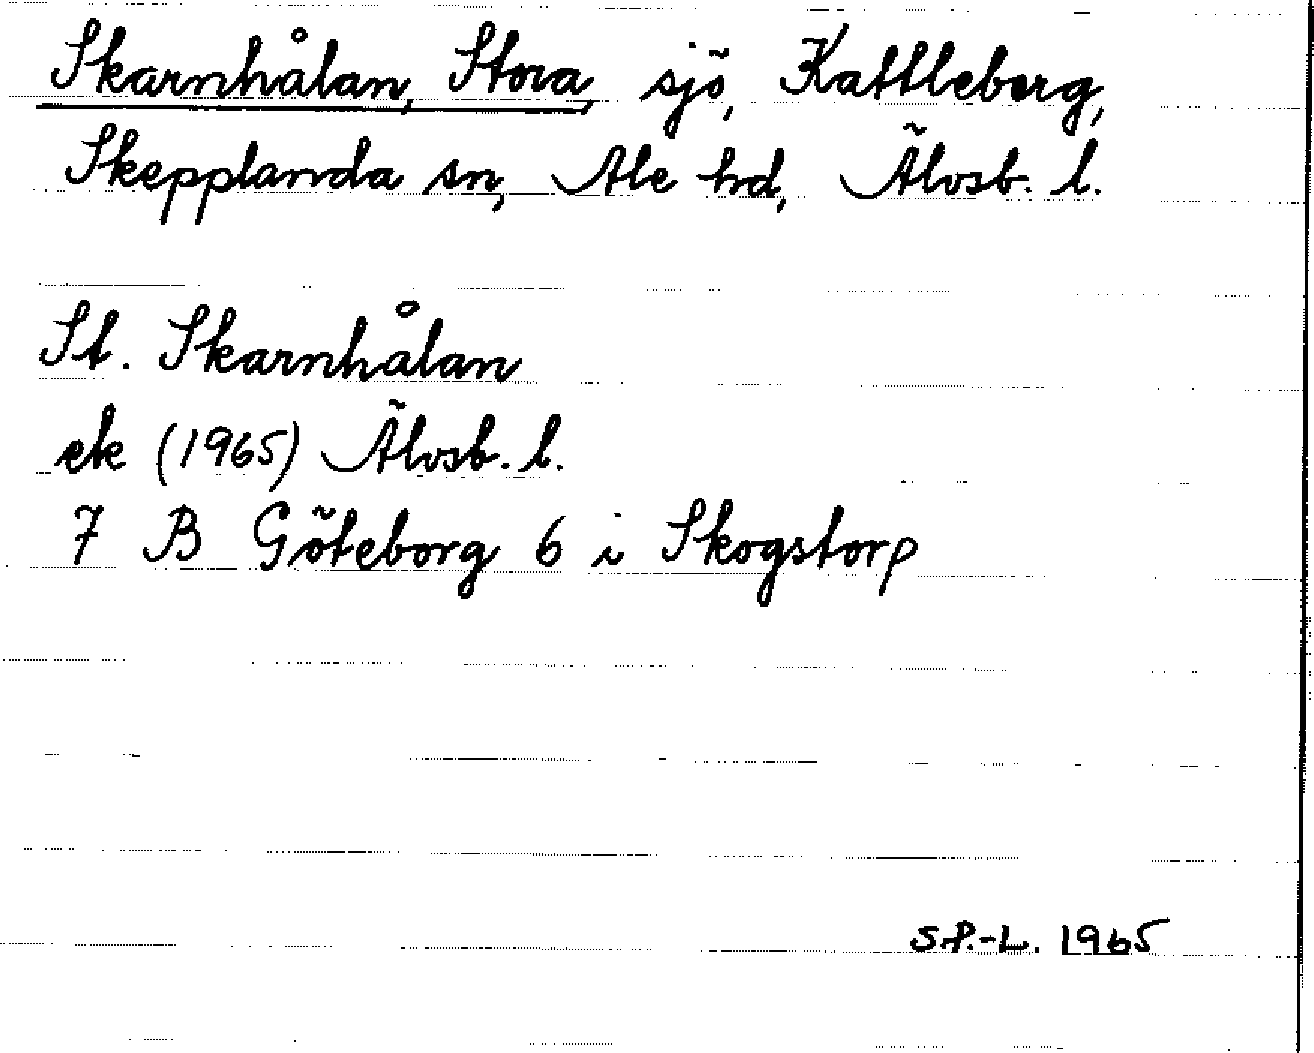 Skarnhålan, Stora, sjö, Kattleberg,
Skepplanda sn, Ale hd, Älvsb. l.
St. Skarnhålan
ek (1965) Älvsb. l.
7 B Göteborg 6 i Skogstorp
S.P.-L. 1965